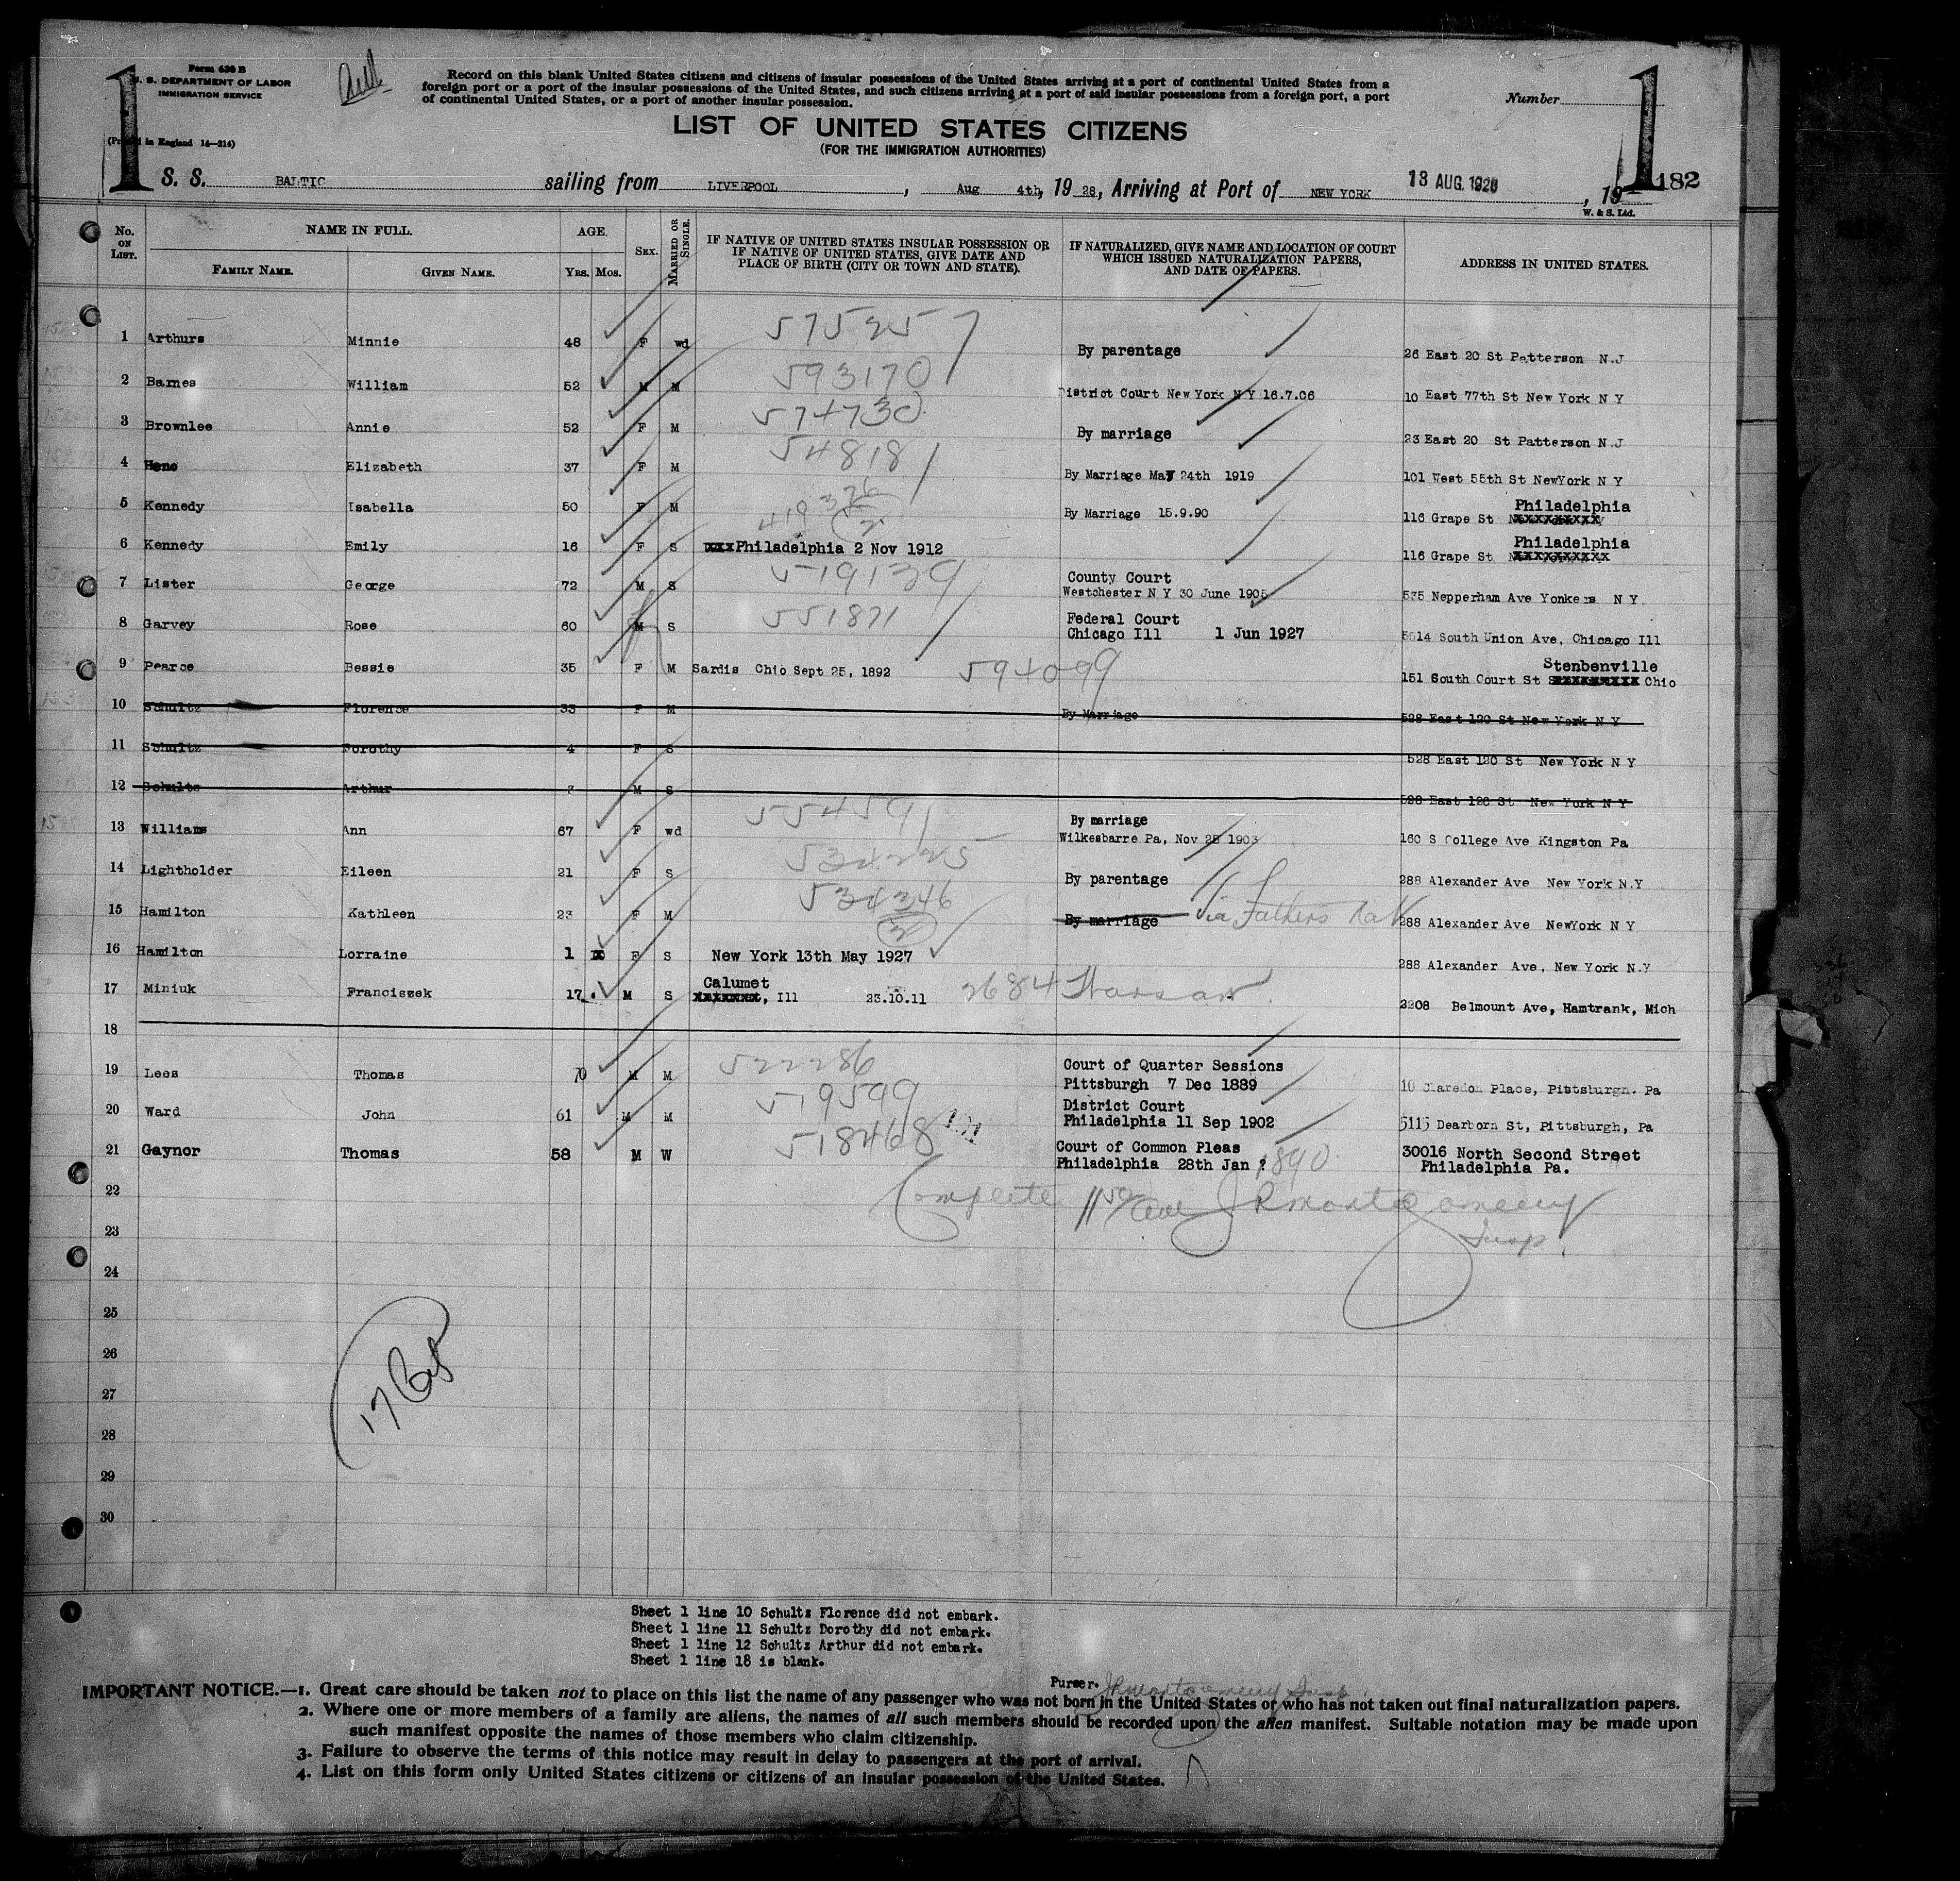 Form 630 B
U. S. DEPARTMENT OF LABOR
IMMIGRATION SERVICE
(Printed in England 14—214)
1
Record on this blank United States citizens and citizens of insular possessions of the United States arriving at a port of continental United States from a
foreign port or a port of the insular possessions of the United States, and such citizens arriving at a port of said insular possessions from a foreign port, a port
of continental United States, or a port of another insular possession.
Number
1
182
LIST OF UNITED STATES CITIZENS
(FOR THE IMMIGRATION AUTHORITIES)
S. S. BALTIC sailing from LIVERPOOL, Aug 4th, 1928, Arriving at Port of NEW YORK 13 AUG. 1928, 19
W. & S. Ltd.
No. ON LIST. NAME IN FULL. FAMILY NAME. GIVEN NAME. AGE. YRS. MOS. SEX. MARRIED OR SINGLE. IF NATIVE OF UNITED STATES INSULAR POSSESSION OR IF NATIVE OF UNITED STATES, GIVE DATE AND PLACE OF BIRTH (CITY OR TOWN AND STATE). IF NATURALIZED, GIVE NAME AND LOCATION OF COURT WHICH ISSUED NATURALIZATION PAPERS, AND DATE OF PAPERS. ADDRESS IN UNITED STATES.
1 Arthurs Minnie 48 F wd 575257 By parentage 26 East 20 St Patterson N.J
2 Barnes William 52 M M 593170 District Court New York N Y 16.7.06 10 East 77th St New York N Y
3 Brownlee Annie 52 F M 574730 By marriage 23 East 20 St Patterson N.J
4 Heno Elizabeth 37 F M 548181 By Marriage May 24th 1919 101 West 55th St NewYork N Y
5 Kennedy Isabella 50 F M 419376 2 By Marriage 15.9.90 116 Grape St Philadelphia
6 Kennedy Emily 16 F S Philadelphia 2 Nov 1912 116 Grape St Philadelphia
7 Lister George 72 M S 519139 County Court Westchester N Y 30 June 1905 535 Nepperham Ave Yonkers N Y
8 Garvey Rose 60 M f S 551871 Federal Court Chicago Ill 1 Jun 1927 5514 South Union Ave, Chicago Ill
9 Pearce Bessie 35 F M Sardis Ohio Sept 25, 1892 594099 151 South Court St Stenbenville Ohio
10 Schultz Florence 33 F M By Marriage 528 East 120 St New York N Y
11 Schultz Dorothy 4 F S 528 East 120 St New York N Y
12 Schultz Arthur M S 528 East 120 St New York N Y
13 Williams Ann 67 F wd 554591 By marriage Wilkesbarre Pa, Nov 25 1903 160 S College Ave Kingston Pa
14 Lightholder Eileen 21 F S 534225 By parentage 288 Alexander Ave New York N.Y
15 Hamilton Kathleen 23 F M 534346 2 By marriage Via Fathers Nat 288 Alexander Ave NewYork N Y
16 Hamilton Lorraine 1 F S New York 13th May 1927 288 Alexander Ave, New York N.Y
17 Miniuk Franciszek 17 M S Calumet, Ill 23.10.11 2684 Warsaw 2208 Belmount Ave, Hamtrank, Mich
18
19 Lees Thomas 70 M M 522286 Court of Quarter Sessions Pittsburgh 7 Dec 1889 10 Claredon Place, Pittsburgh. Pa
20 Ward John 61 M M 519599 District Court Philadelphia 11 Sep 1902 5115 Dearborn St, Pittsburgh, Pa
21 Gaynor Thomas 58 M W 518468 Court of Common Pleas Philadelphia 28th Jan ? 1890 30016 North Second Street Philadelphia Pa.
22 Complete J R Montgomery
23 Insp.
24
25
26
27
28
29
30
Sheet 1 line 10 Schultz Florence did not embark.
Sheet 1 line 11 Schultz Dorothy did not embark.
Sheet 1 line 12 Schultz Arthur did not embark.
Sheet 1 line 18 is blank.
Purser. J R Montgomery Insp.
IMPORTANT NOTICE.—1. Great care should be taken not to place on this list the name of any passenger who was not born in the United States or who has not taken out final naturalization papers.
2. Where one or more members of a family are aliens, the names of all such members should be recorded upon the alien manifest. Suitable notation may be made upon
such manifest opposite the names of those members who claim citizenship.
3. Failure to observe the terms of this notice may result in delay to passengers at the port of arrival.
4. List on this form only United States citizens or citizens of an insular possession of the United States.